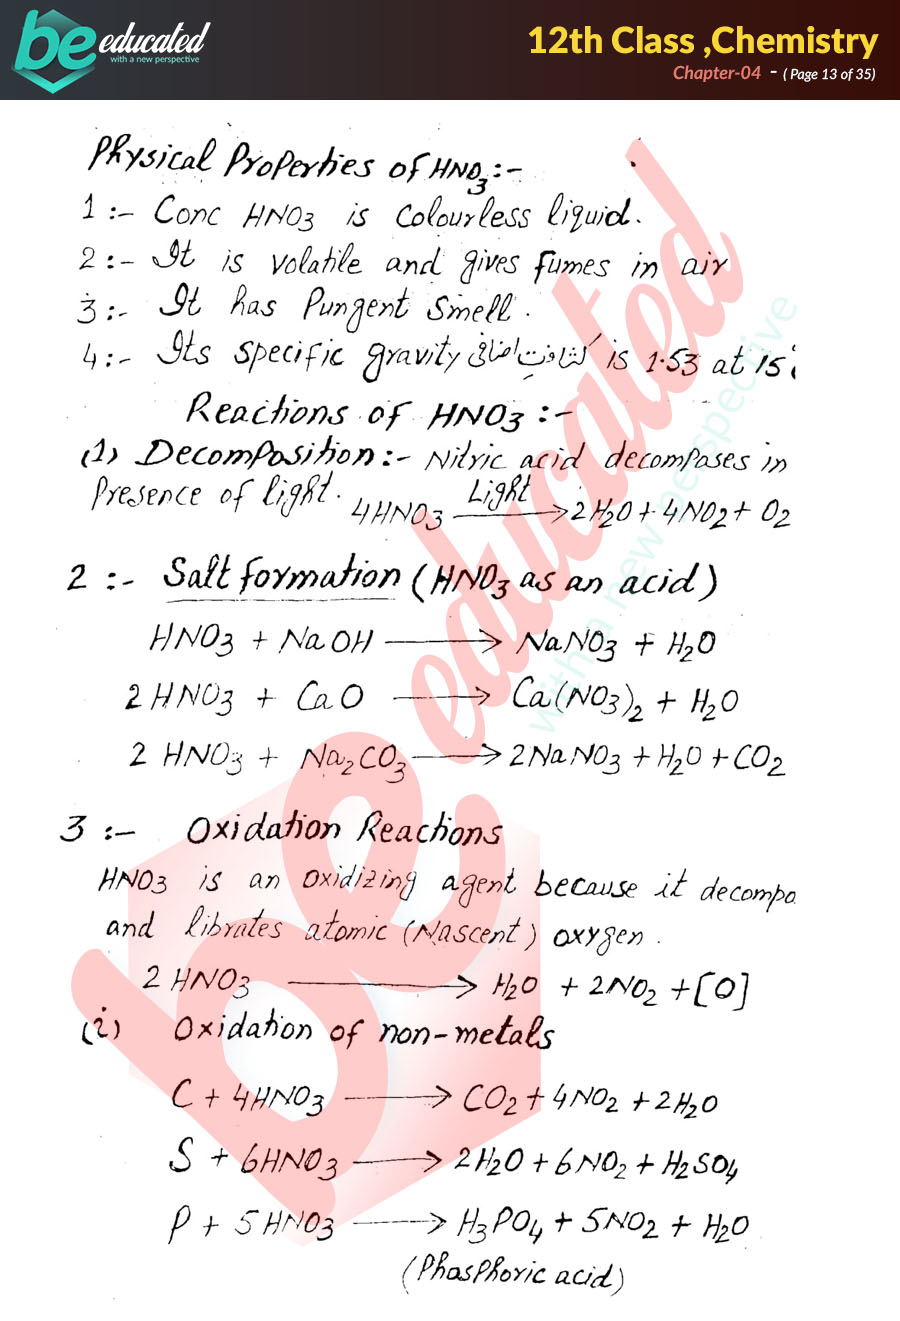 be educated
with a new perspective
12th Class ,Chemistry
Chapter-04 - ( Page 13 of 35)
Physical Properties of HNO3:-
1 :- Conc HNO3 is colourless liquid.
2 :- It is volatile and gives fumes in air
3 :- It has Pungent smell.
4 :- Its specific gravity کثافت اضافی is 1.53 at 15
Reactions of HNO3 :-
(1) Decomposition :- Nitric acid decomposes in
Presence of light.
4HNO3 Light → 2H2O + 4NO2 + O2
2 :- Salt formation (HNO3 as an acid)
HNO3 + NaOH → NaNO3 + H2O
2 HNO3 + CaO → Ca(NO3)2 + H2O
2 HNO3 + Na2CO3 → 2NaNO3 + H2O + CO2
3 :- Oxidation Reactions
HNO3 is an oxidizing agent because it decompo
and librates atomic (Nascent) oxygen.
2 HNO3 → H2O + 2NO2 + [O]
(i) Oxidation of non-metals
C + 4HNO3 → CO2 + 4NO2 + 2H2O
S + 6HNO3 → 2H2O + 6NO2 + H2SO4
P + 5HNO3 → H3PO4 + 5NO2 + H2O
(Phosphoric acid)
be educated
with a new perspective